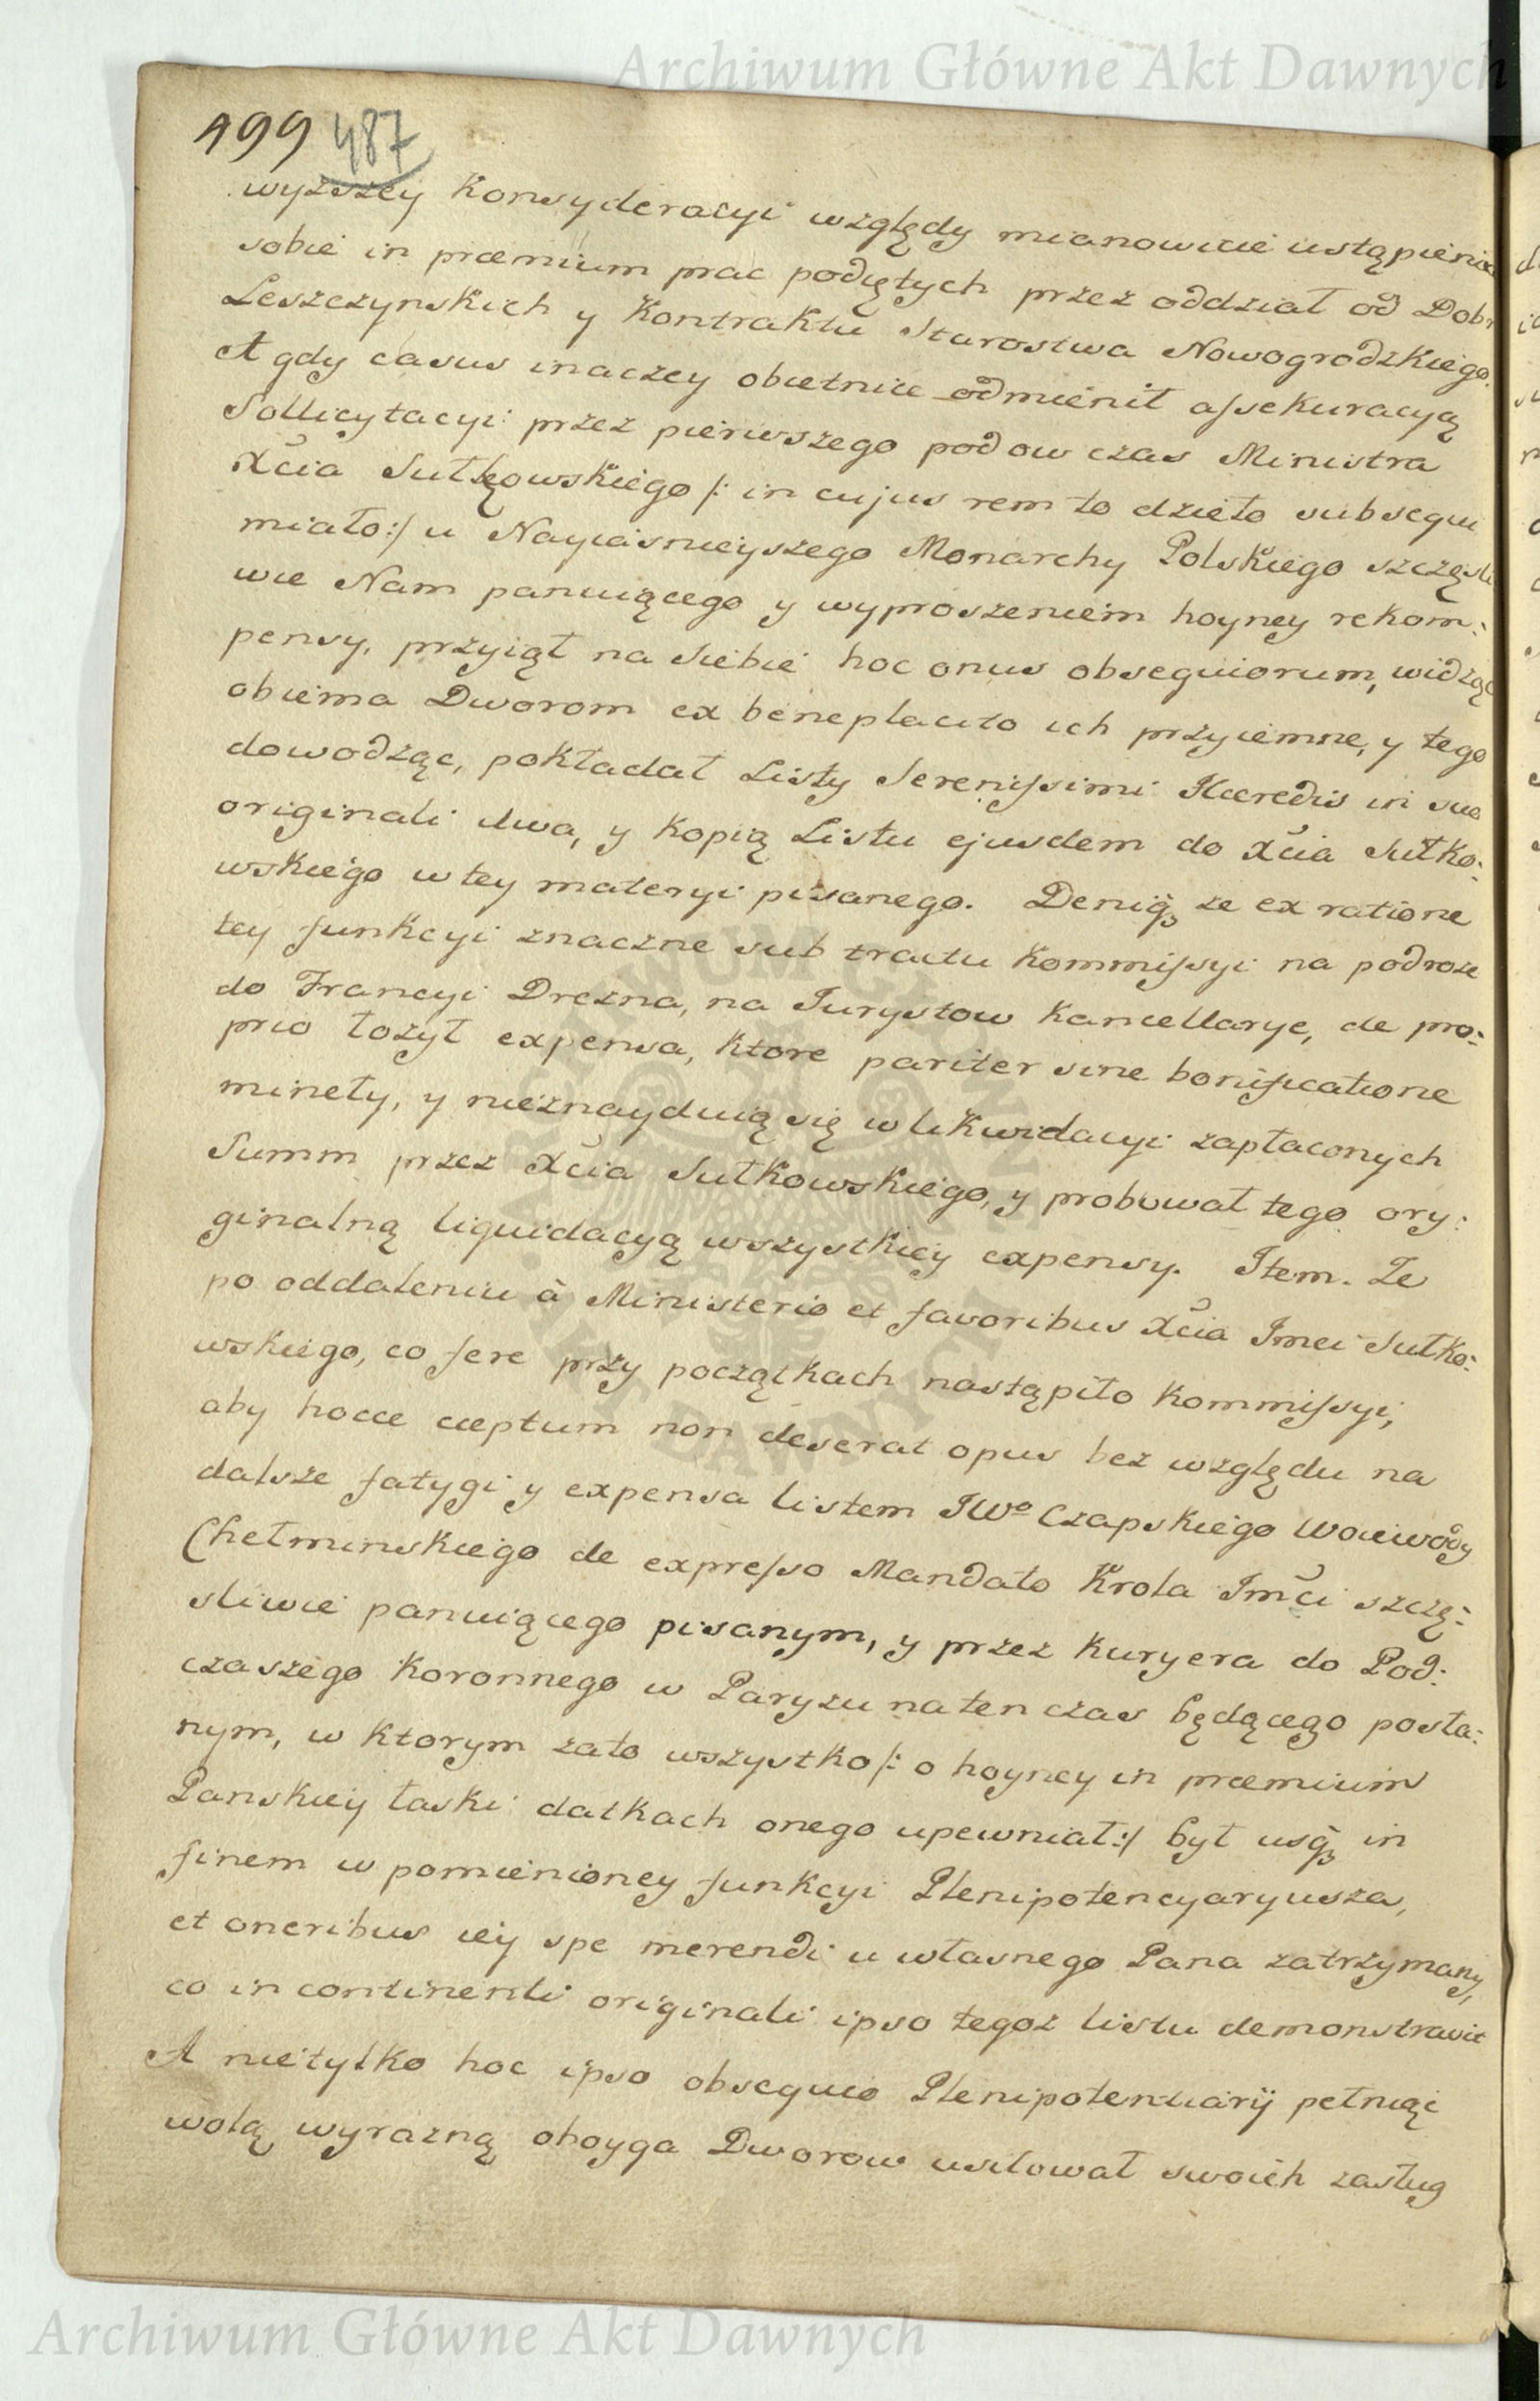 Archiwum Główne Akt Dawnych
499 487
wyższey Konsyderacyi względy mianowicie ustąpienia
sobie in præmium prac podiętych przez oddział od Dobr
Leszczynskich y Kontraktu Starostwa Nowogrodzkiego.
A gdy casus inaczey obietnice odmienił assekuracyą
Sollicytacyi przez pierwszego podow czas Ministra
Xcia Sułkowskiego /: in cujus rem to dzieło subsequi
miało :/ u Nayiasnieyszego Monarchy Polskiego szczęśli
wie Nam panuiącego y wyproszeniem hoyney rekom:
pensy, przyiął na siebie hoc onus obsequiorum, widząc
obiema Dworom ex beneplacito ich przyiemne, y tego
dowodząc, pokładał Listy Serenissimi Hæredis in suo
originali dwa, y kopią Listu ejusdem do Xcia Sułko:
wskiego w tey materyi pisanego. Deniq₃ że ex ratione
tey funkcyi znaczne sub tractu Kommissyi na podroże
do Francyi Drezna, na Jurystow Kancellarye, de pro:
prio łożył expensa, ktore pariter sine bonificatione
mineły, y nieznayduią się w likwidacyi zapłaconych
Summ przez Xcia Sułkowskiego, y probował tego ory:
ginalną liquidacyą wszystkiey expensy. Item. Że
po oddaleniu à Ministerio et favoribus Xcia Imci Sułko:
wskiego, co fere przy początkach nastąpiło Kommissyi,
aby hocce cæptum non deserat opus bez względu na
dalsze fatygi y expensa listem JWº Czapskiego Woiewody
Chełminskiego de expresso Mandato Krola Imci szczę:
sliwie panuiącego pisanym, y przez Kuryera do Pod:
czaszego Koronnego w Paryżu naten czas będącego posła:
nym, w ktorym zato wszystko /: o hoyney in præmium
Panskiey łaski datkach onego upewniał :/ był usq₃ in
finem w pomienioney funkcyi Plenipotencyaryusza,
et oneribus iey spe merendi u własnego Pana zatrzymany,
co in continenti originali ipso tegoż listu demonstravit
A nietylko hoc ipso obsequio Plenipotentiarij pełniąc
wolą wyrazną oboyga Dworow usiłował swoich zasług
Archiwum Główne Akt Dawnych